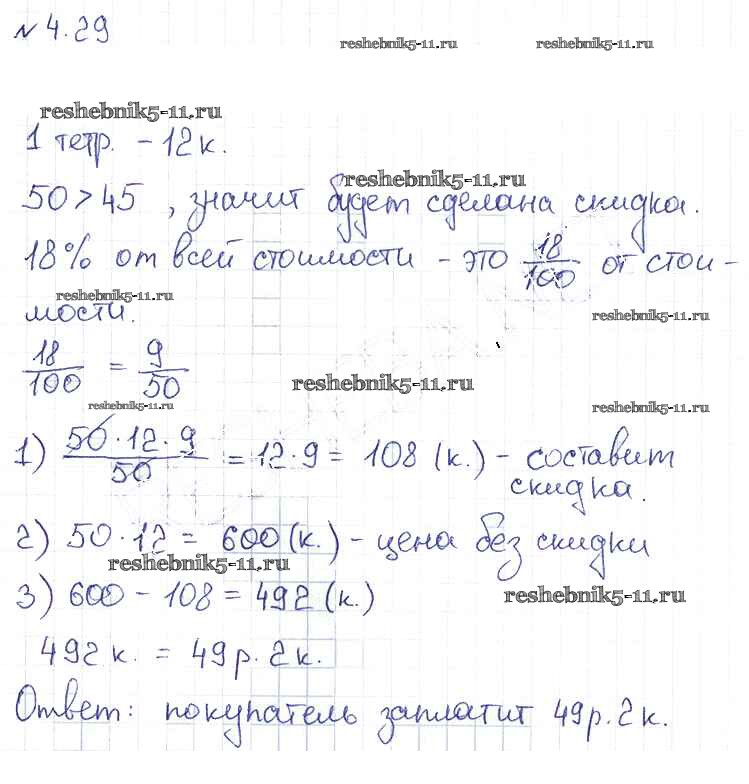 № 4.29
reshebnik5-11.ru reshebnik5-11.ru
reshebnik5-11.ru
1 тетр. - 12 к.
reshebnik5-11.ru
50 > 45 , значит будет сделана скидка.
18% от всей стоимости - это 18/100 от стои-
reshebnik5-11.ru reshebnik5-11.ru
мости.
18/100 = 9/50
reshebnik5-11.ru
reshebnik5-11.ru reshebnik5-11.ru
1) 50·12·9/50 = 12·9 = 108 (к.) - составит
скидка.
2) 50·12 = 600 (к.) - цена без скидки
reshebnik5-11.ru
3) 600 - 108 = 492 (к.)
reshebnik5-11.ru
492 к. = 49 р. 2 к.
Ответ: покупатель заплатит 49 р. 2 к.